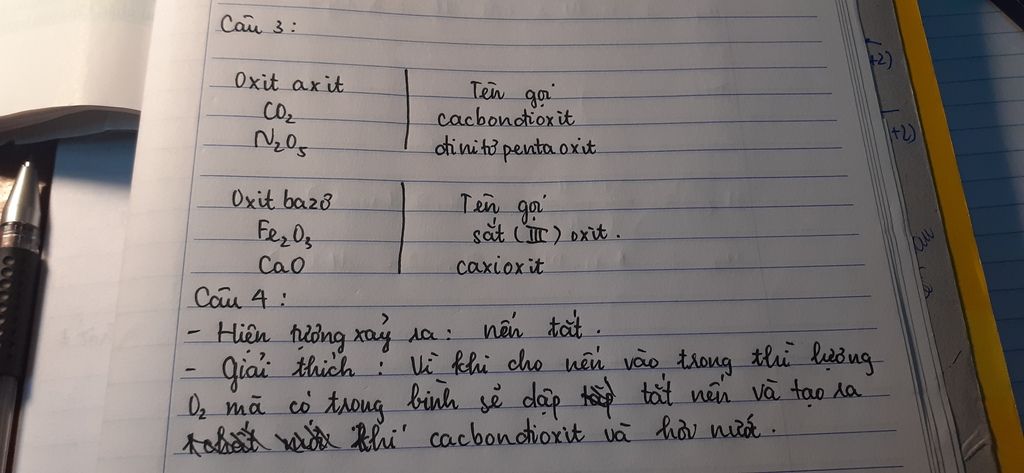 Câu 3:
Oxit axit Tên gọi
CO2 cacbonđioxit
N2O5 đinitơpentaoxit
Oxit bazơ Tên gọi
Fe2O3 sắt (III) oxit.
CaO caxioxit
Câu 4:
- Hiện tượng xảy ra: nến tắt.
- Giải thích: Vì khi cho nến vào trong thì lượng
O2 mà có trong bình sẽ dập tắt nến và tạo ra
khí cacbonđioxit và hơi nước.
+2)
+2)